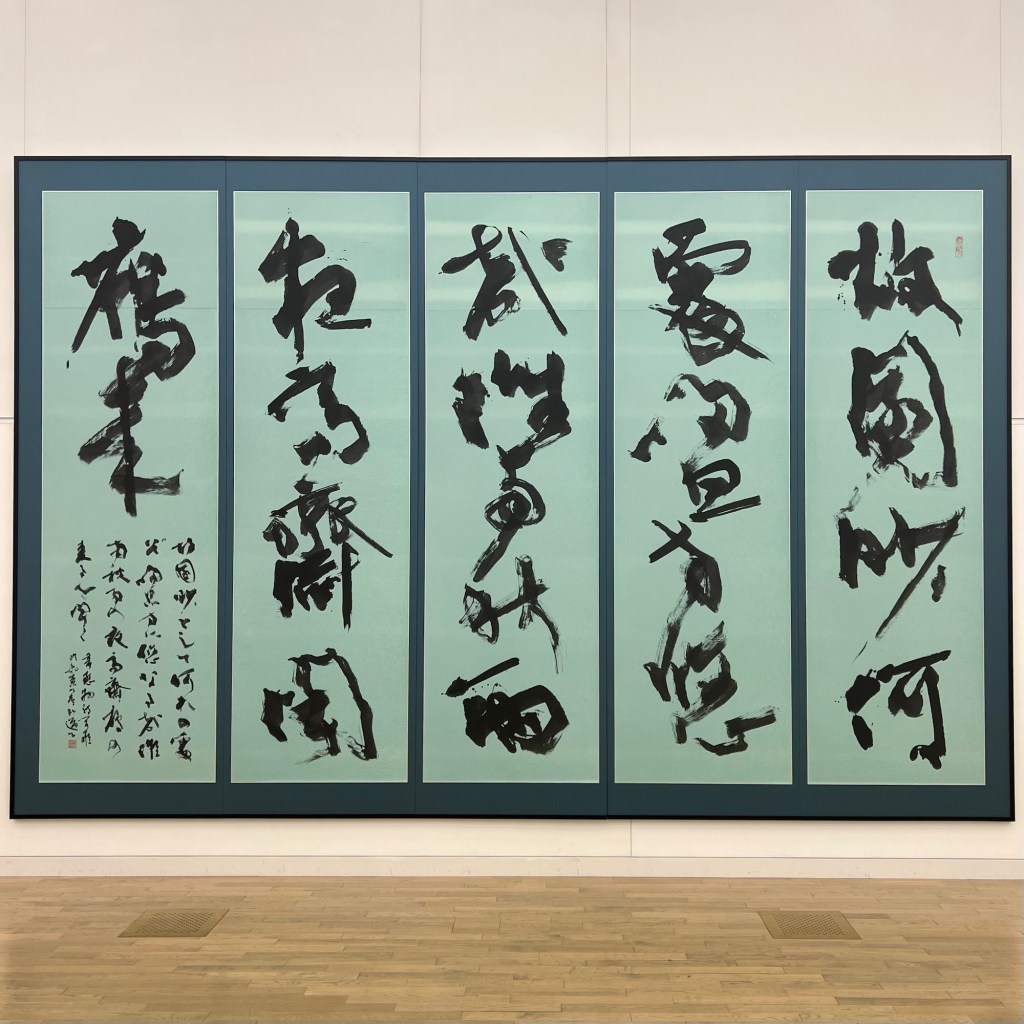 故園眇何
處歸思方悠
哉淮南秋雨
夜高齋聞
鴈來
故園眇として何れの處
ぞ歸思方に悠なる哉淮
南秋雨の夜高齋鴈の
来るを聞く
韋應物詩